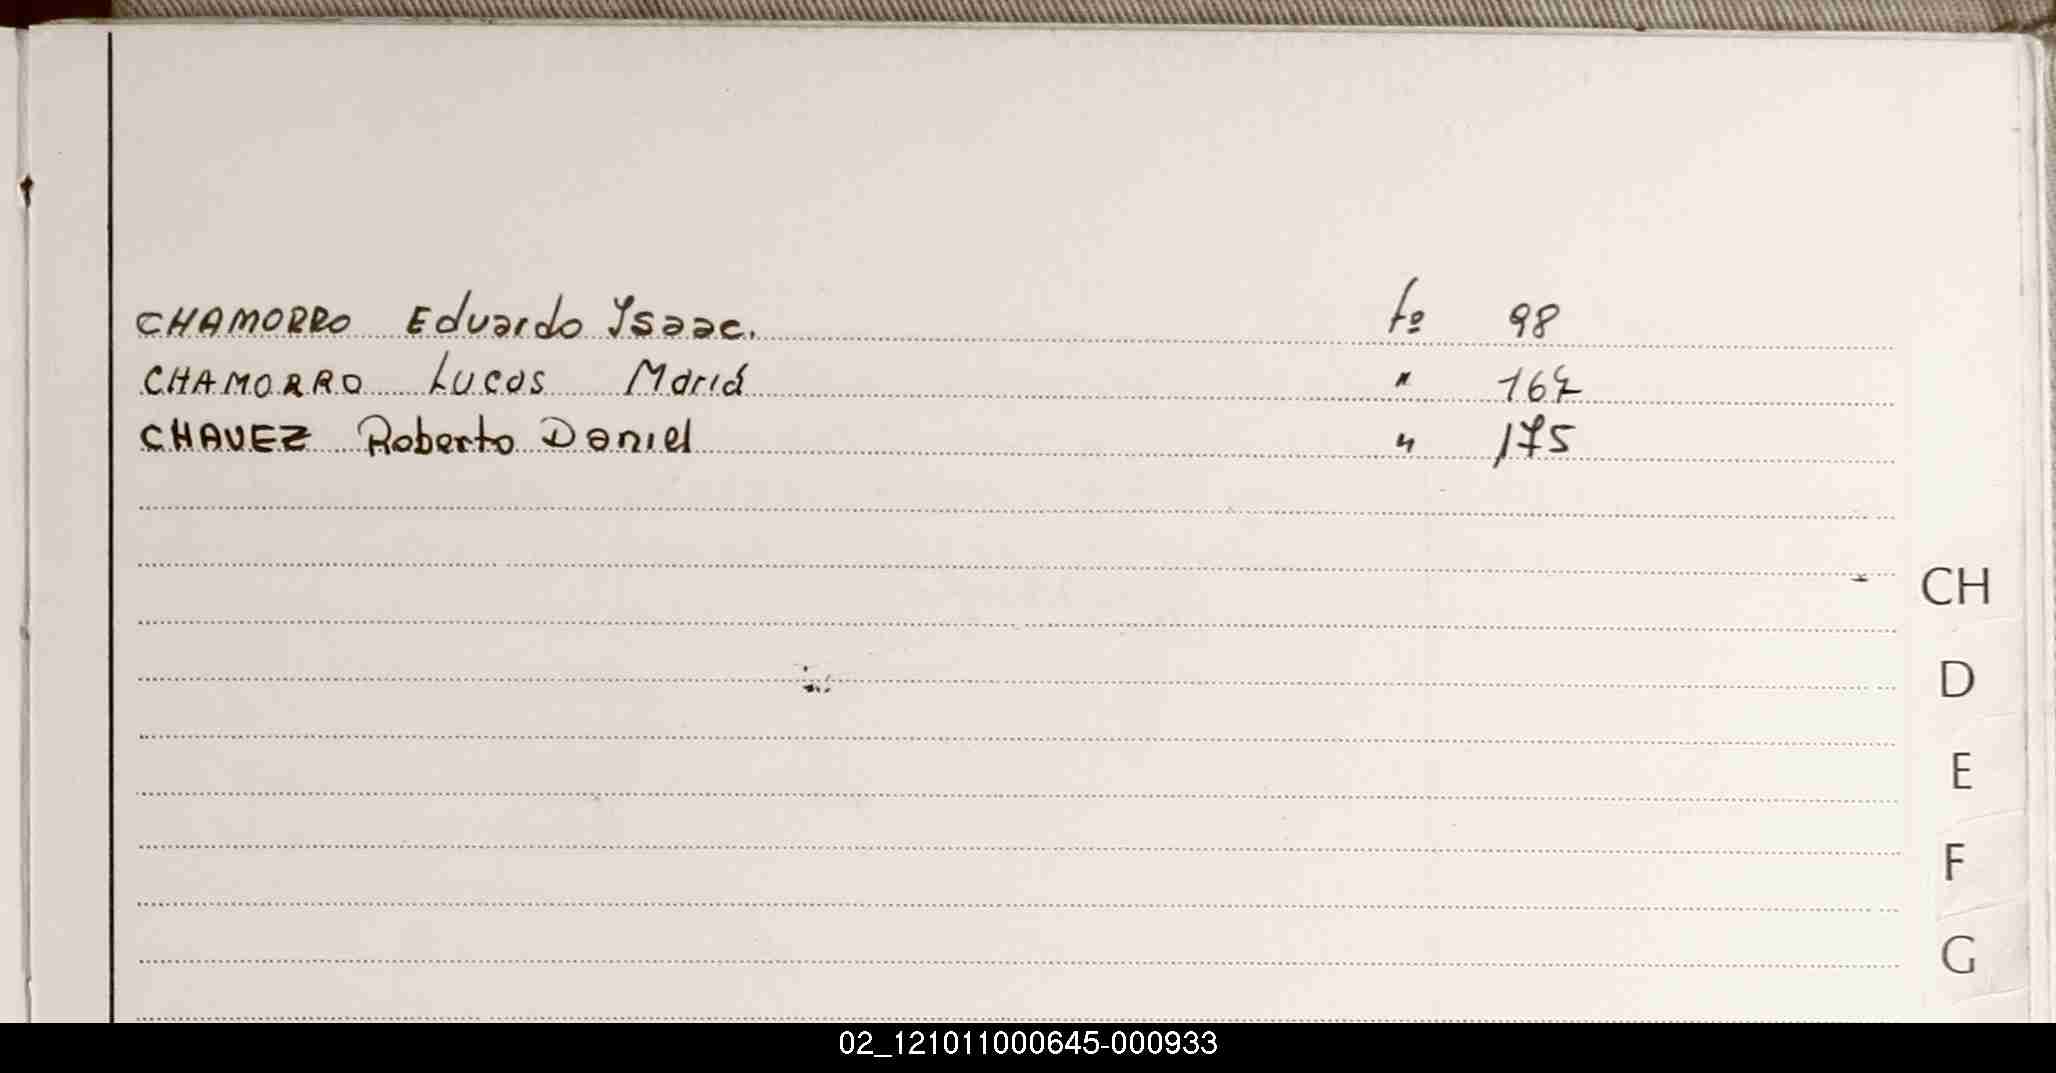 CHAMORRO Eduardo Ysaac. fº 98
CHAMORRO Lucas Maria " 167
CHAVEZ Roberto Daniel " 175
CH
D
E
F
G
02_121011000645-000933